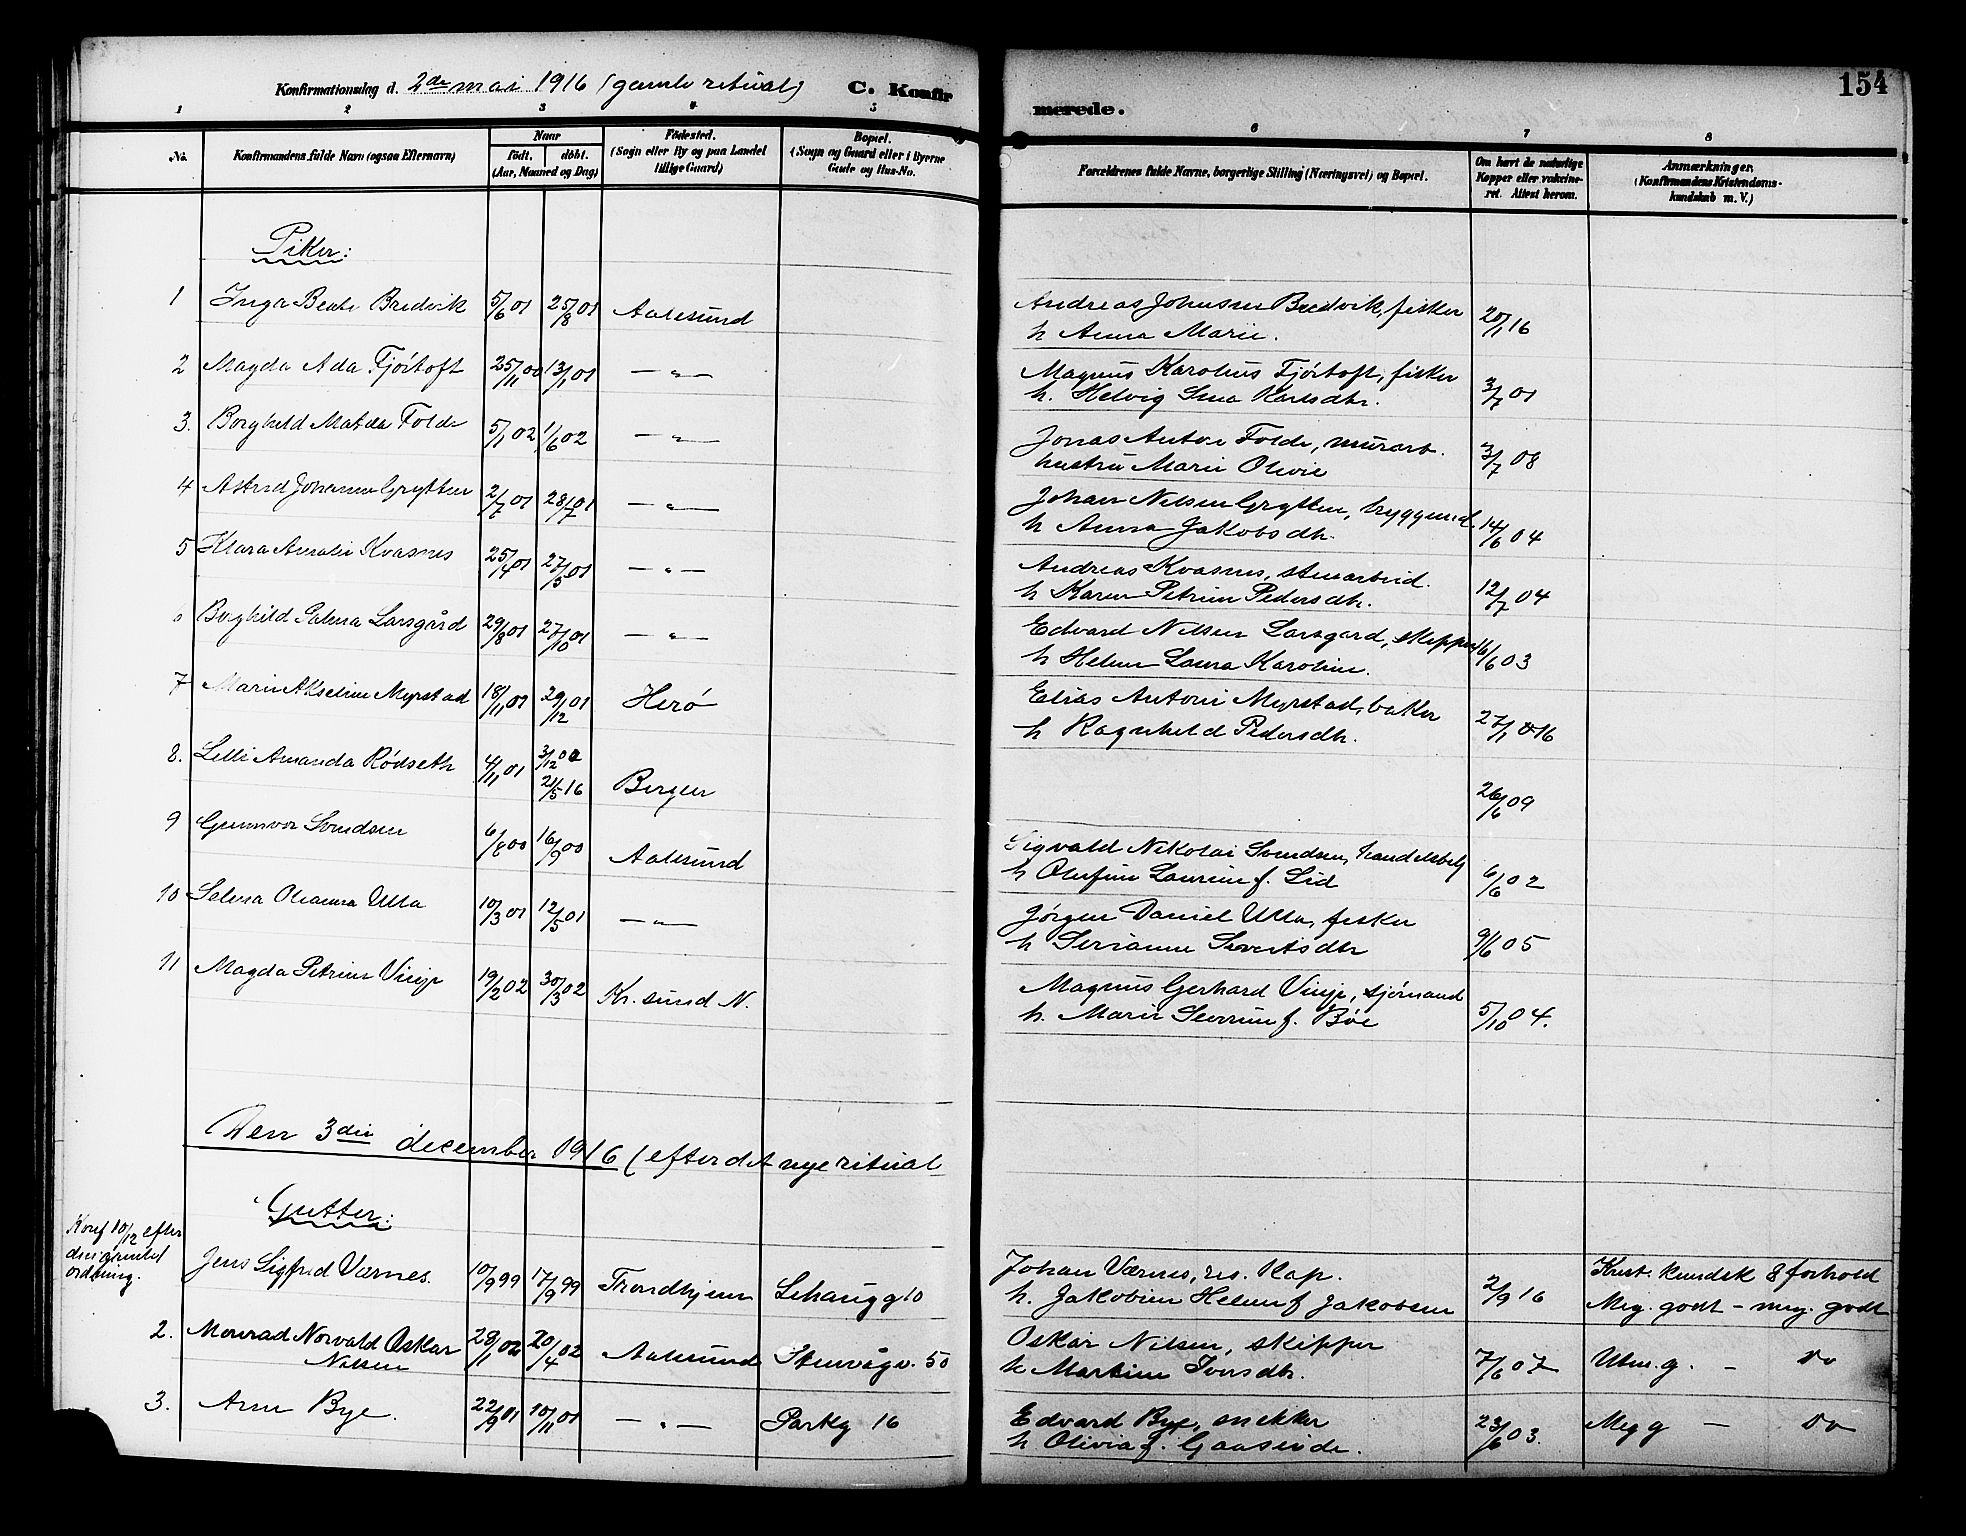 Konfirmationsdag d. 2den mai 1916 (gamle ritual) C. Konfir
merede. 154
1 2 3 4 5 6 7 8
No. Konfirmandens fulde Navn (ogsaa Efternavn) Naar født, døbt. (Aar, Maaned og Dag) Fødested. (Sogn eller By og paa Landet tillige Gaard) Bopæl. (Sogn og Gaard eller i Byerne Gade og Hus-No. Forældrenes fulde Navne, borgerlige Stilling (Næringsvei) og Bopæl. Om havt de naturlige Kopper eller vakcineret. Attest herom. Anmærkninger. (Konfirmandens Kristendomskundskab m. V.)
Piker:
1 Inga Beate Bredvik 5/6 01 25/8 01 Aalesund Andreas Johnsen Bredvik, fisker 20/1 16
h Anna Marie.
2 Magda Ada Fjørtoft 25/11 00 13/1 01 — " — Magnus Karolius Fjørtoft, fisker 3/7 01
h. Helvig Sina Karlsdtr.
3. Borghild Matda Folde 5/1 02 1/6 02 — " — Jonas Anton Folde, murarb. 3/7 08
hustru Marie Olivie
4 Astrid Johanne Grytten 2/7 01 28/7 01 — " — Johan Nilsen Grytten, byggmd. 14/6 04
h Anna Jakobsdtr.
5 Klara Amalie Kvasnes 25/4 01 27/5 01 — " — Andreas Kvasnes, stenarbeid. 12/7 04
h Karen Petrine Pedersdtr.
6 Borghild Palma Larsgård 29/8 01 27/10 01 — " — Edvard Nilsen Larsgård, skipper 16/6 03
h Helene Laura Karoline.
7 Marie Akseline Myrstad 18/11 01 29/12 01 Herø Elias Antoni Myrstad, baker 27/1 16
h Ragnhild Pedersdtr.
8. Lilli Amanda Rødseth 4/11 01 3/12 00 Bergen 26/6 09
21/5 16
9 Gunnvor Svendsen 6/8 00 16/9 00 Aalesund Sigvald Nikolai Svendsen, handelsbetj 6/6 02
h Olufine Laurine f. Lid
10 Selma Oleanna Ulla 10/3 01 12/5 01 — " — Jørgen Daniel Ulla, fisker 9/6 05
h Serianne Sivertsdtr
11 Magda Petrine Vinje 19/2 02 30/3 02 Kr.sund N. Magnus Gerhard Vinje, sjømand 5/10 04.
h. Marie Severine f. Bøe
Den 3die december 1916 (efter det nye ritual
Gutter:
Konf 10/12 efter
den gamle
ordning.
Jens Sigfred Værnes. 10/9 99 17/9 99 Trondhjem Lihaugg 10 Johan Værnes, res. Kap. 2/9 16 Krist. kundsk & forhold
h. Jakobine Helene f Jakobsen Meg. godt - meg. godt
2. Monrad Norvald Oskar 28/1 02 20/4 02 Aalesund Stenvågv. 50 Oskar Nilsen, skipper 7/6 07 Utm. g. - Do
Nilsen h Martine Iversdtr.
3. Arne Bye. 22/9 01 10/11 01 — " — Parkg 16 Edvard Bye, snekker 23/6 03. Meg g - Do
h Olivia f. Gaaseide.